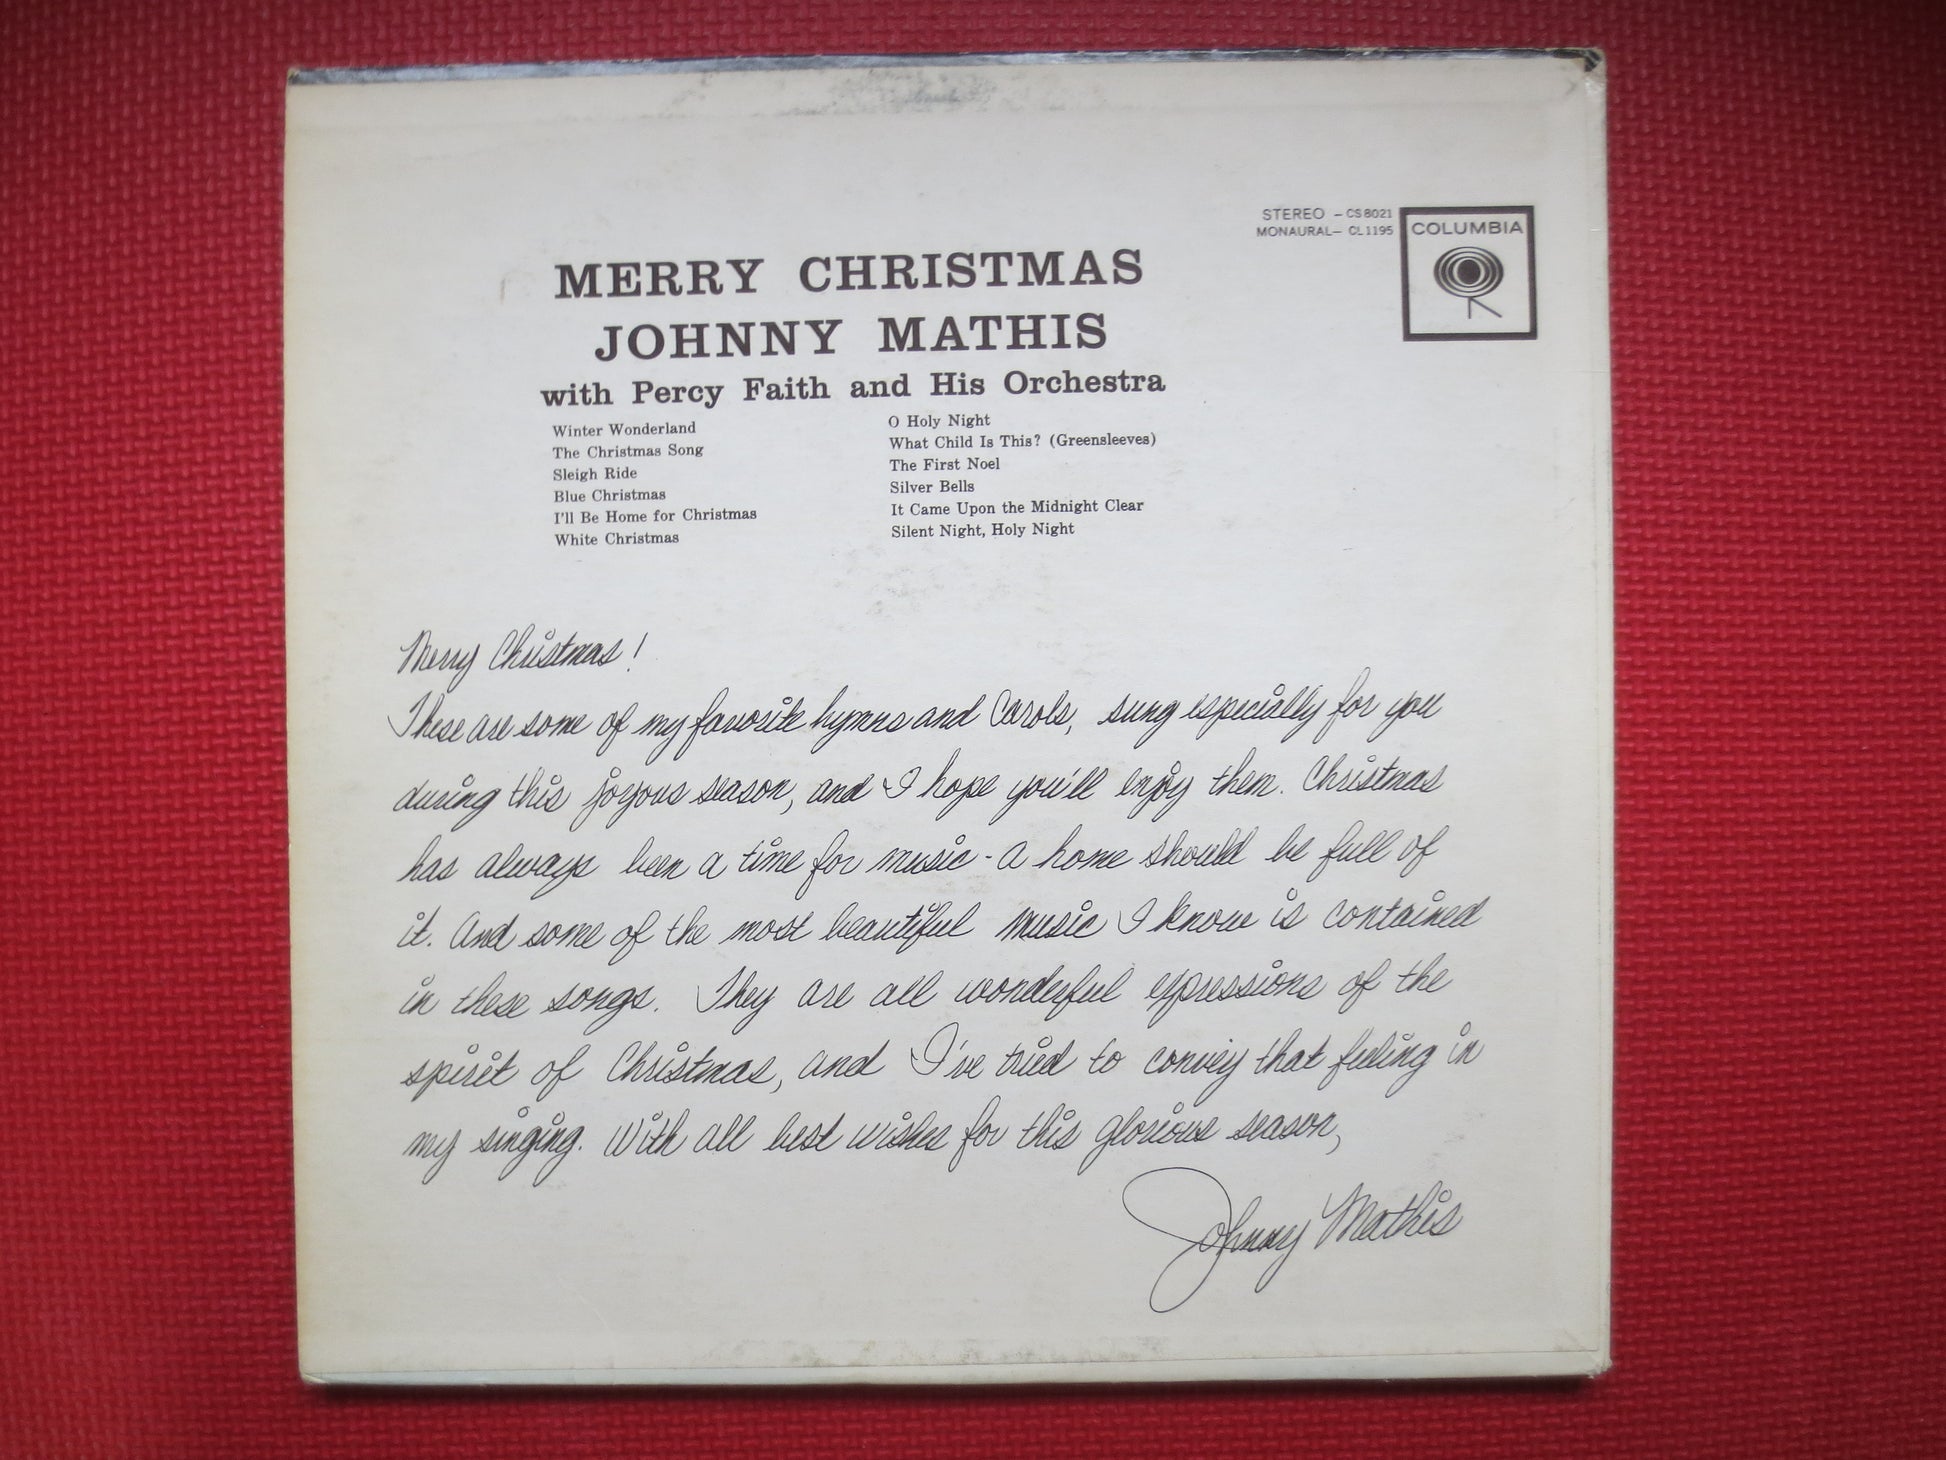 STEREO – CS 8021
MONAURAL– CL 1195
COLUMBIA
MERRY CHRISTMAS
JOHNNY MATHIS
with Percy Faith and His Orchestra
Winter Wonderland
The Christmas Song
Sleigh Ride
Blue Christmas
I'll Be Home for Christmas
White Christmas
O Holy Night
What Child Is This? (Greensleeves)
The First Noel
Silver Bells
It Came Upon the Midnight Clear
Silent Night, Holy Night
Merry Christmas!
These are some of my favorite hymns and Carols, sung especially for you
during this joyous season, and I hope you'll enjoy them. Christmas
has always been a time for music - a home should be full of
it. And some of the most beautiful music I know is contained
in these songs. They are all wonderful expressions of the
spirit of Christmas, and I've tried to convey that feeling in
my singing. With all best wishes for this glorious season,
Johnny Mathis